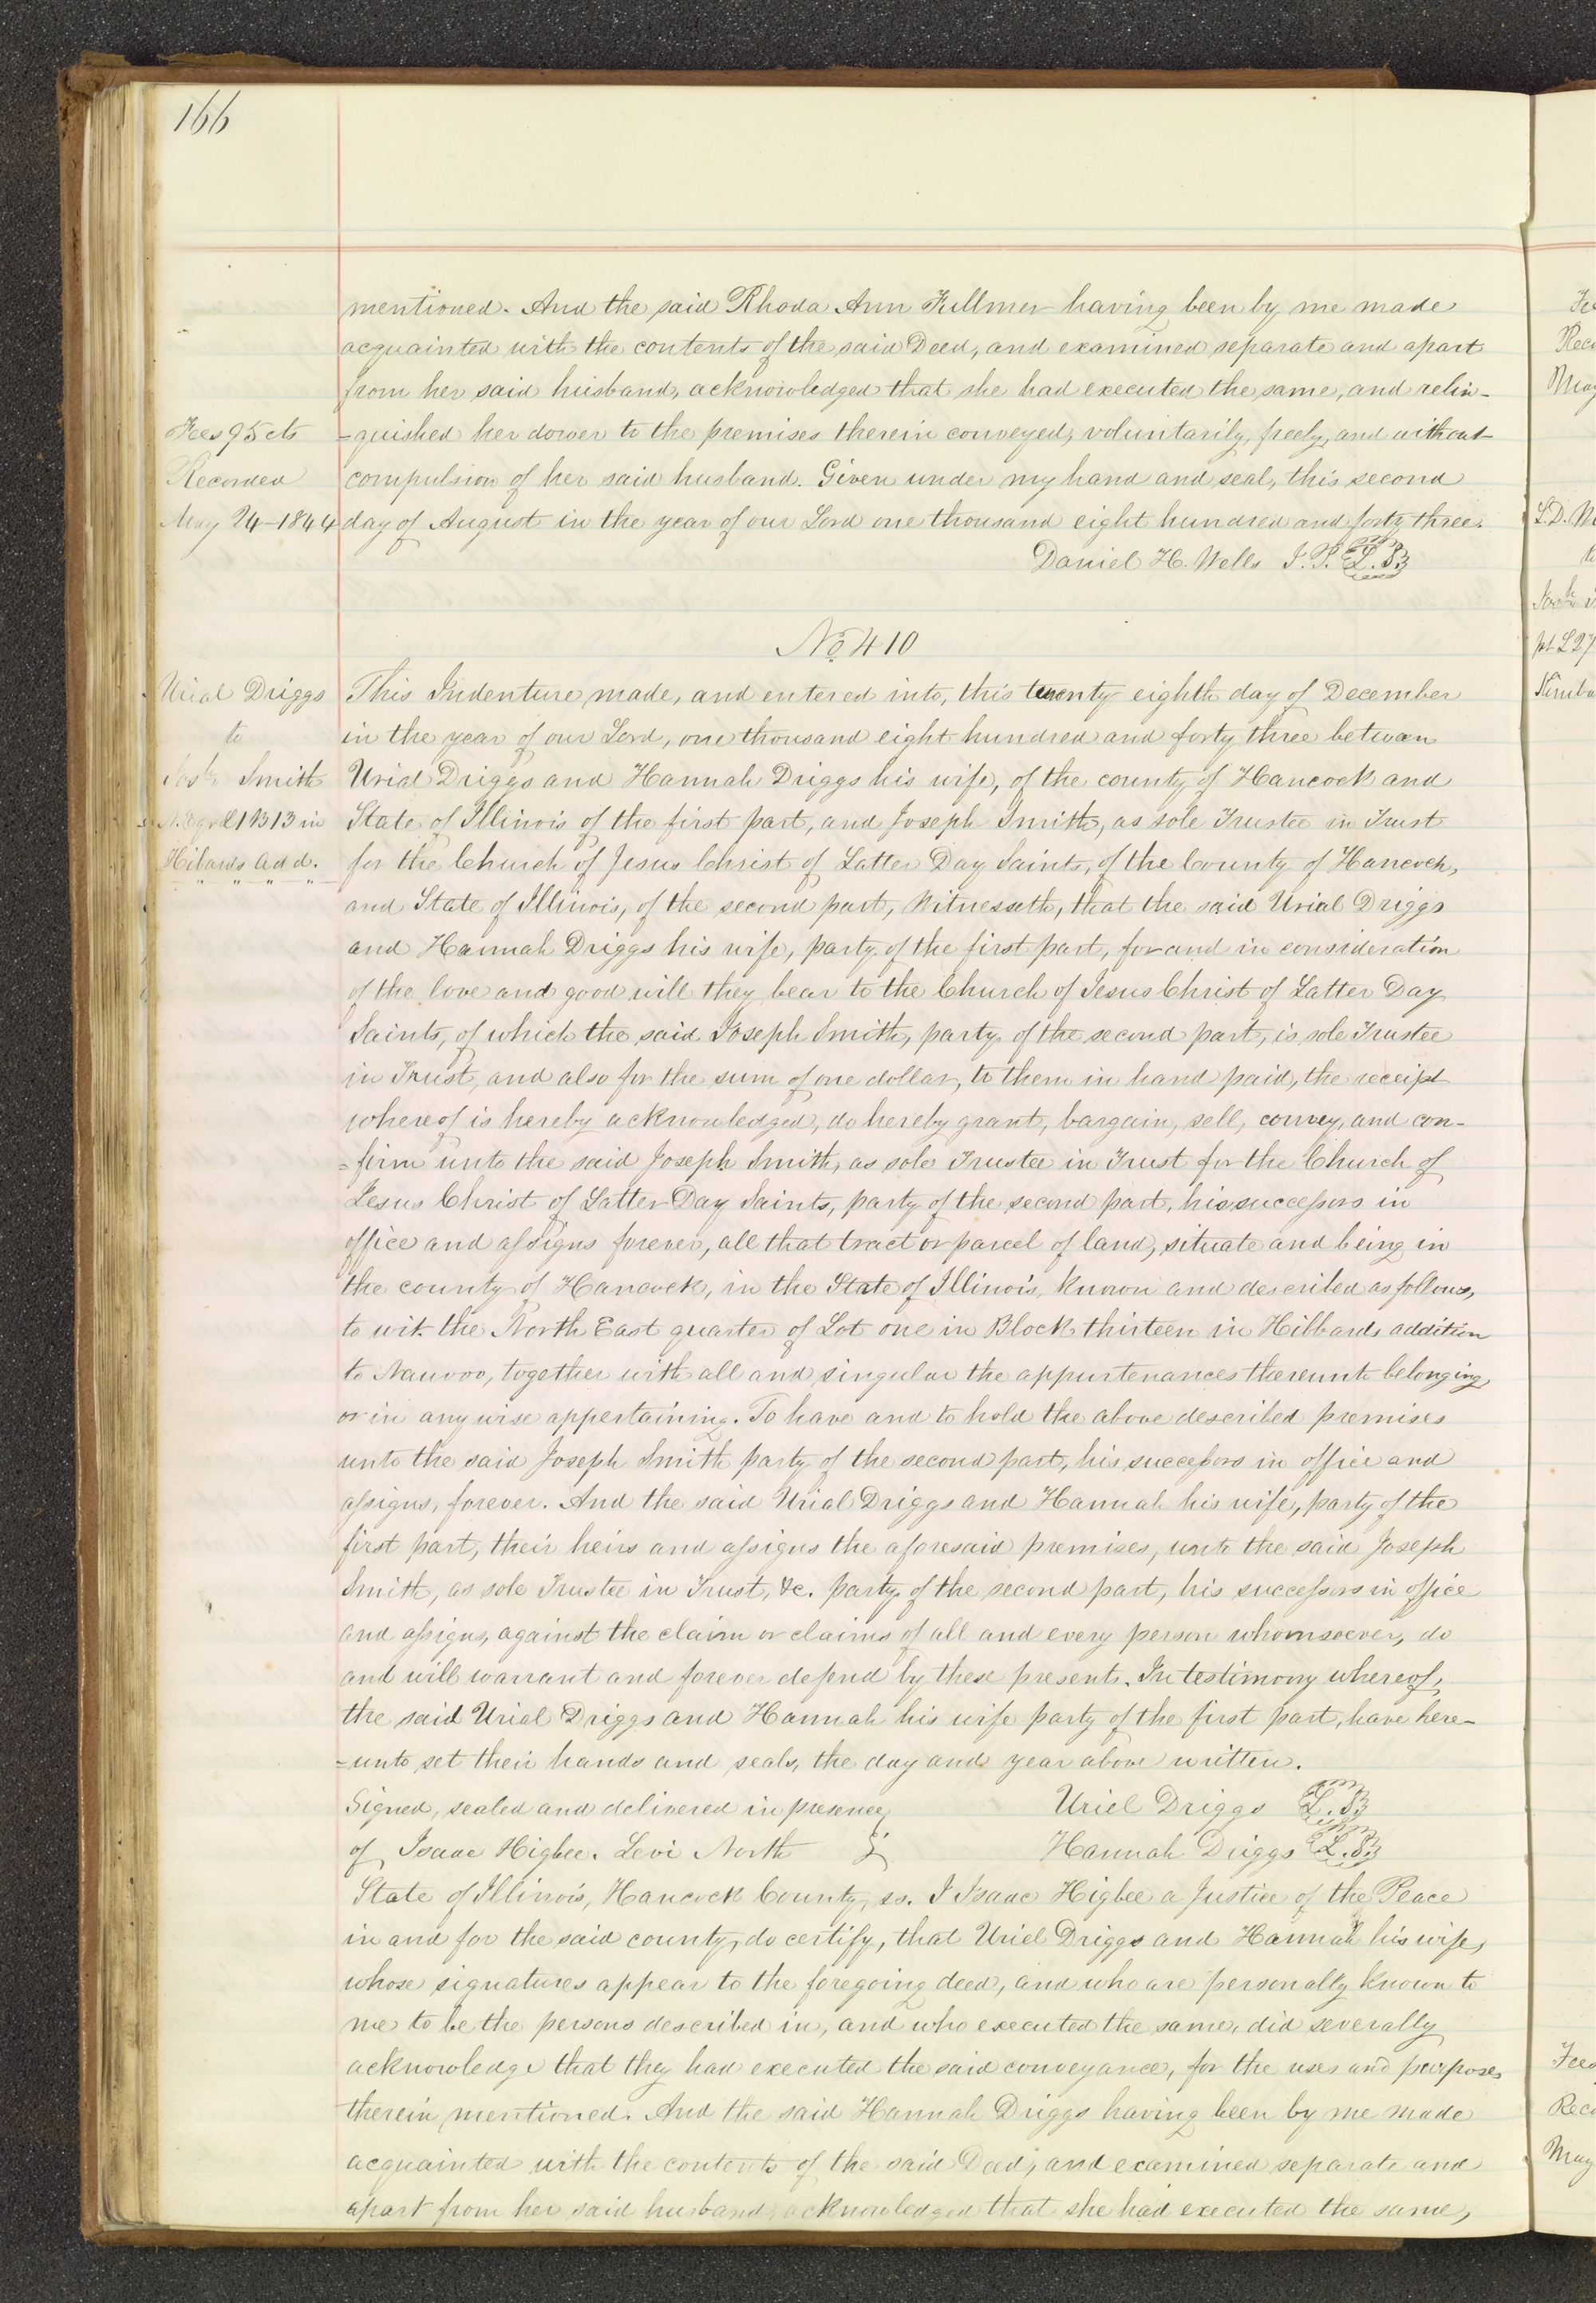 166
mentioned. And the said Rhoda Ann Fullmer having been by me made
acquainted with the contents of the said Deed, and examined separate and apart
from her said husband, acknowledged that she had executed the same, and relin-
Fees 95 cts
=quished her dower to the premises therein conveyed, voluntarily, freely, and without
Recorded
compulsion of her said husband. Given under my hand and seal, this second
May 24-1844
day of August in the year of our Lord one thousand eight hundred and forty three.
Daniel H. Wells J. P. L.S.
No 410
Urial Driggs
This Indenture made, and entered into, this twenty eighth day of December
to
in the year of our Lord, one thousand eight hundred and forty three between
Josh Smith
Urial Driggs and Hannah Driggs his wife, of the county of Hancock and
N.E qr L1 B13 in
State of Illinois of the first part, and Joseph Smith, as sole Trustee in Trust
Hibards add.
for the Church of Jesus Christ of Latter Day Saints, of the County of Hancock,
and State of Illinois, of the second part, Witnesseth, that the said Urial Driggs
and Hannah Driggs his wife, party of the first part, for and in consideration
of the love and good will they bear to the Church of Jesus Christ of Latter Day
Saints, of which the said Joseph Smith, party of the second part, is sole Trustee
in Trust, and also for the sum of one dollar, to them in hand paid, the receipt
whereof is hereby acknowledged, do hereby grant, bargain, sell, convey, and con-
=firm unto the said Joseph Smith, as sole Trustee in Trust for the Church of
Jesus Christ of Latter Day Saints, party of the second part, his successors in
office and assigns forever, all that tract or parcel of land, situate and being in
the county of Hancock, in the State of Illinois, known and described as follows,
to wit. the North East quarter of Lot one in Block thirteen in Hibbards addition
to Nauvoo, together with all and singular the appurtenances thereunto belonging,
or in any wise appertaining. To have and to hold the above described premises
unto the said Joseph Smith party of the second part, his successors in office and
assigns, forever. And the said Urial Driggs and Hannah his wife, party of the
first part, their heirs and assigns the aforesaid premises, unto the said Joseph
Smith, as sole Trustee in Trust, &c. party of the second part, his successors in office
and assigns, against the claim or claims of all and every person whomsoever, do
and will warrant and forever defend by these presents. In testimony whereof,
the said Urial Driggs and Hannah his wife party of the first part, have here-
=unto set their hands and seals, the day and year above written.
Signed, sealed and delivered in presence Uriel Driggs L.S.
of Isaac Higbee. Levi North Hannah Driggs L.S.
State of Illinois, Hancock County, ss. I Isaac Higbee a Justice of the Peace
in and for the said county, do certify, that Uriel Driggs and Hannah his wife,
whose signatures appear to the foregoing deed, and who are personally known to
me to be the persons described in, and who executed the same, did severally
acknowledge that they had executed the said conveyance, for the uses and purposes
therein mentioned. And the said Hannah Driggs having been by me made
acquainted with the contents of the said Deed, and examined separate and
apart from her said husband, acknowledged that she had executed the same,